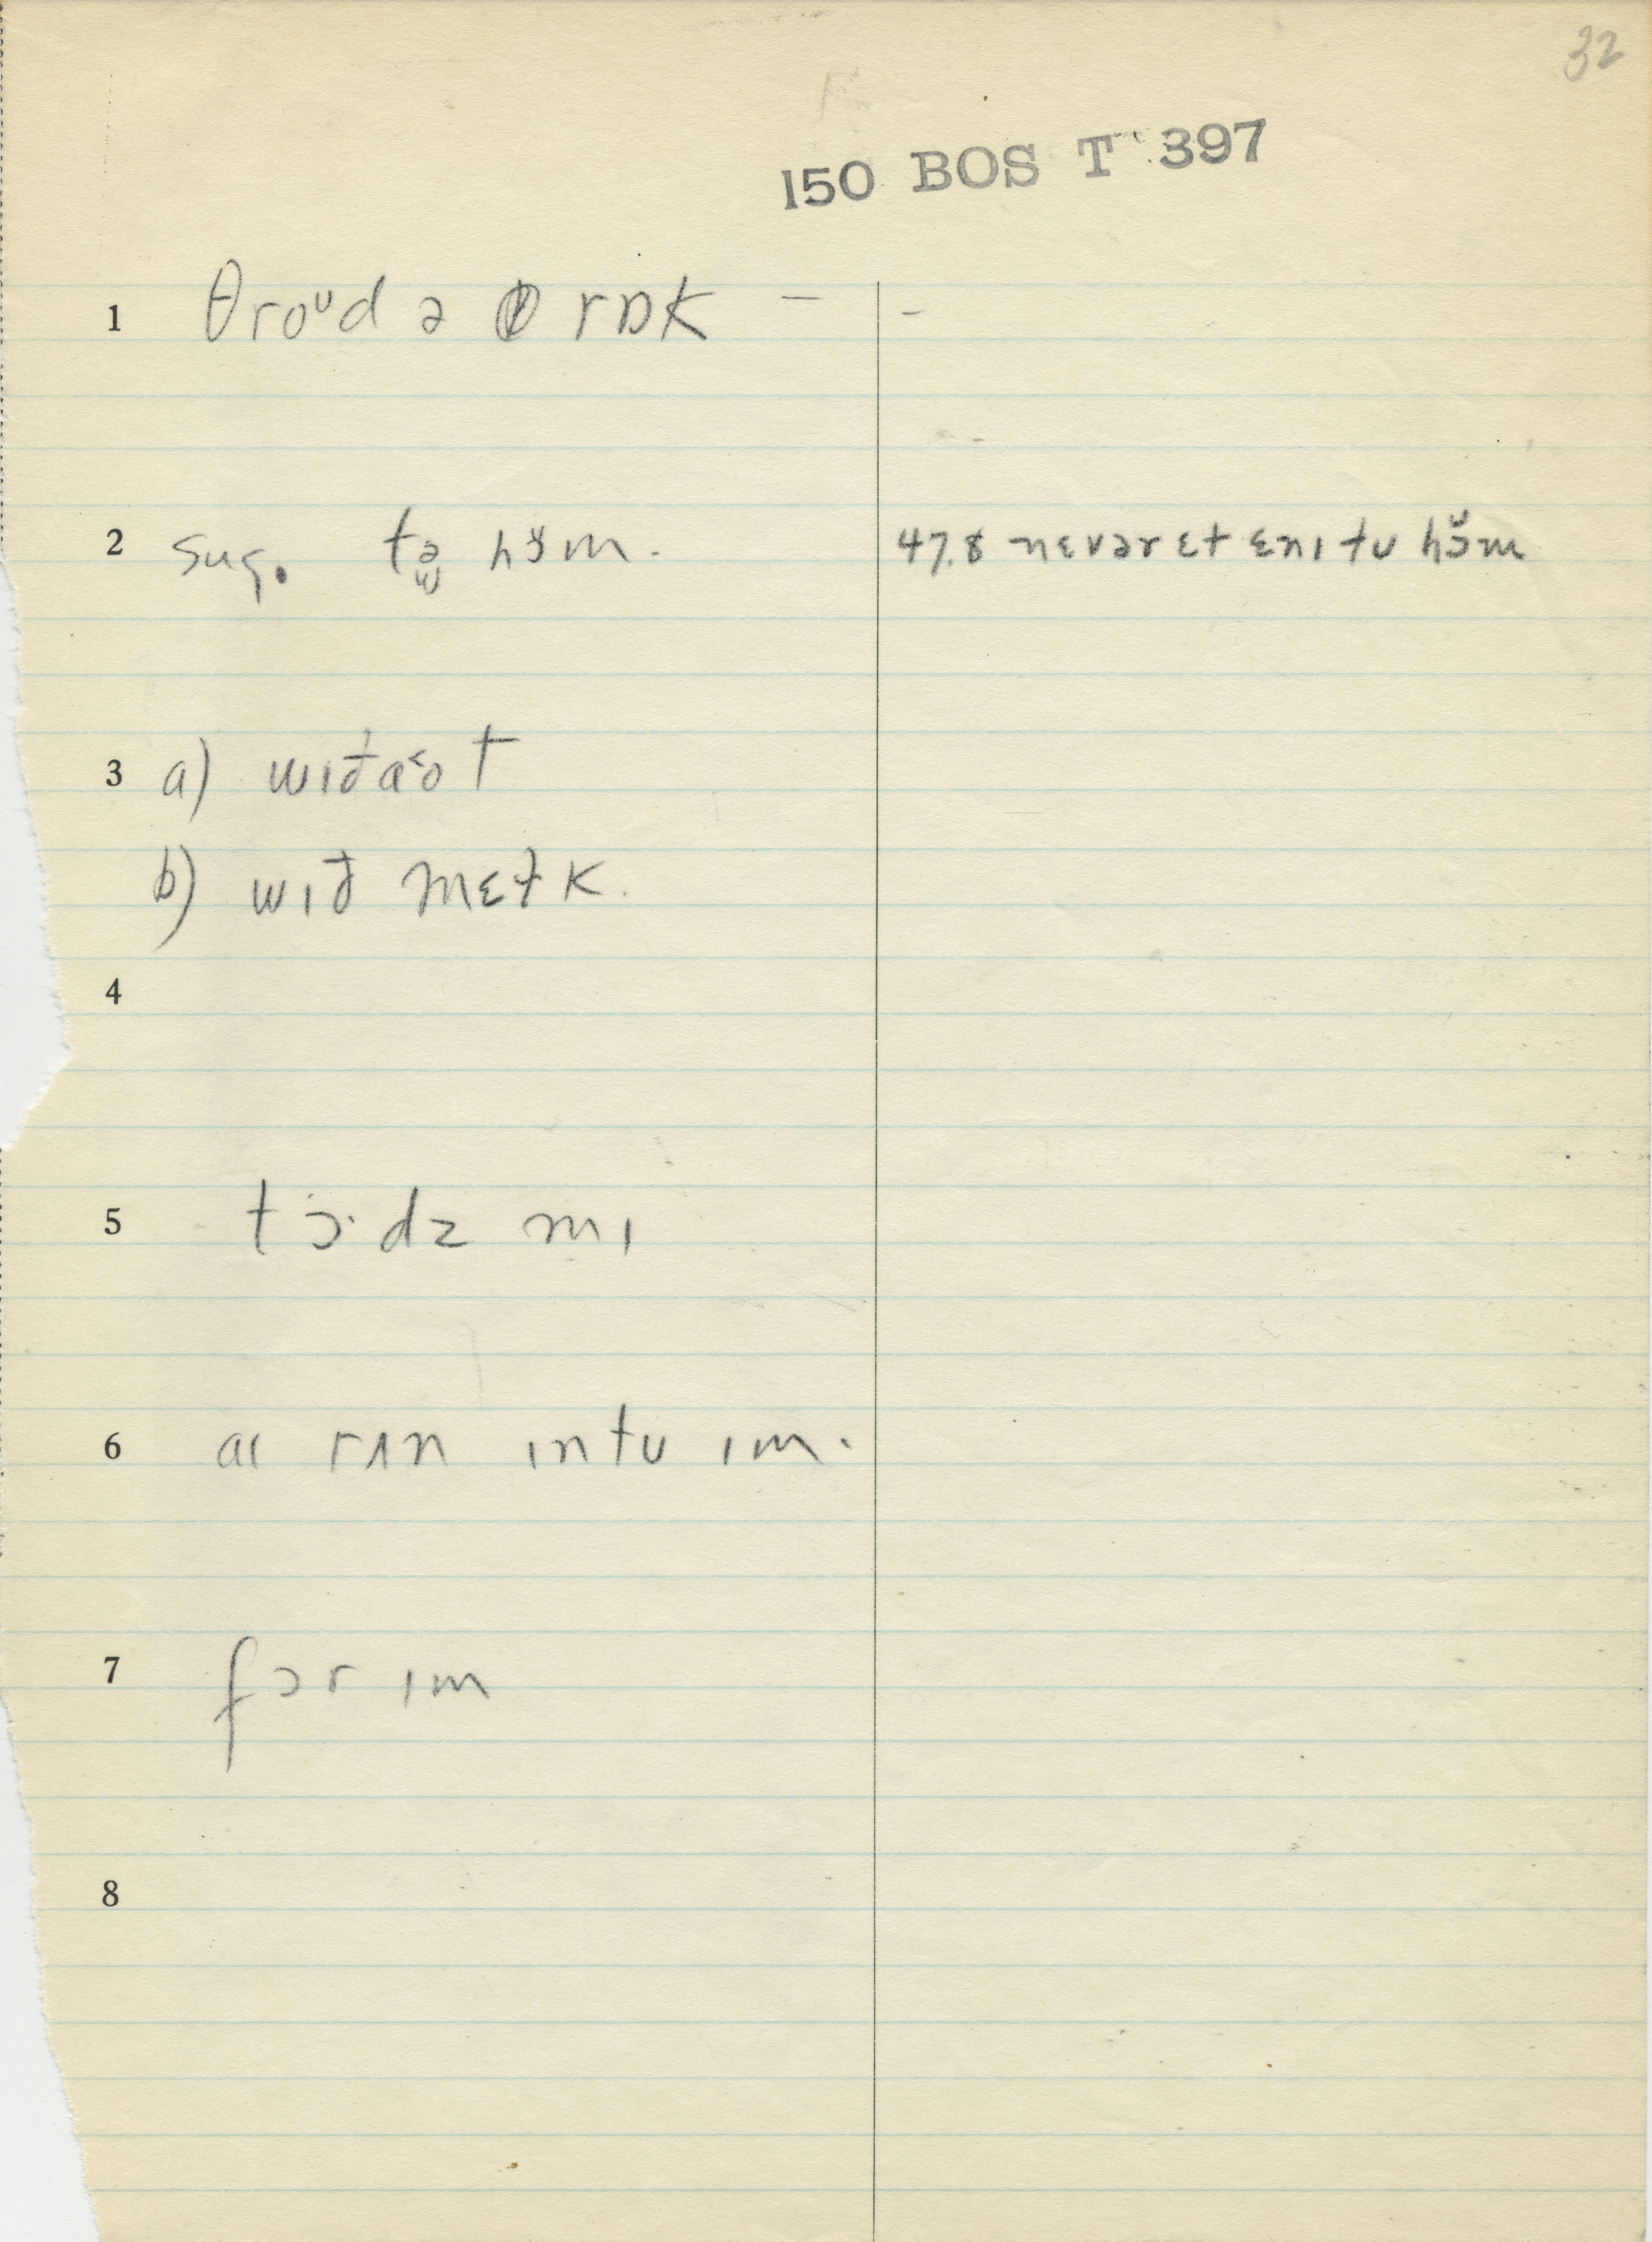 32
150 BOS T 397
1 θroᴜd ə rɒk – -
2 sug. tə hɔ̆m. 47.8 nɛvər ɛt ɛnɪ tʊ hɔ̆m
3 a) wɪðaᵋot
b) wɪð mɛɫk.
4
5 tɔ·dz mɪ
6 aɪ rʌn ɪntʊ ɪm.
7 fɔr ɪm
8